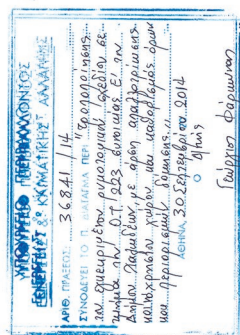 ΥΠΟΥΡΓΕΙΟ ΠΕΡΙΒΑΛΛΟΝΤΟΣ
ΕΝΕΡΓΕΙΑΣ & ΚΛΙΜΑΤΙΚΗΣ ΑΛΛΑΓΗΣ
ΑΡΙΘ. ΠΡΑΞΕΩΣ: 36841/14
ΣΥΝΟΔΕΥΕΙ ΤΟ Π. ΔΙΑΤΑΓΜΑ ΠΕΡΙ "Τροποποίησης
του εγκεκριμένου ρυμοτομικού σχεδίου σε
τμήμα του Ο.Τ. 223 συνοικίας Ε' του
Δήμου Λαμιέων, με άρση απαλλοτρίωσης
κοινόχρηστου χώρου και καθορισμός όρων
και περιορισμών δόμησης"
ΑΘΗΝΑ, 30 Σεπτεμβρίου 2014
Ο
Δ/ντής
Γεώργιος